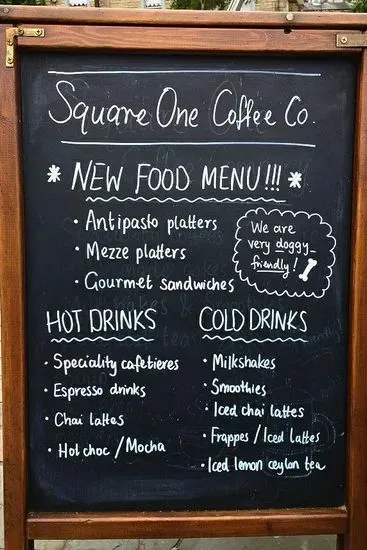 Square One Coffee Co.
* NEW FOOD MENU!!! *
• Antipasto platters
• Mezze platters
• Gourmet sandwiches
We are
very doggy
friendly!
HOT DRINKS
• Speciality cafetieres
• Espresso drinks
• Chai lattes
• Hot choc / Mocha
COLD DRINKS
• Milkshakes
• Smoothies
• Iced chai lattes
• Frappes / Iced lattes
• Iced lemon ceylon tea